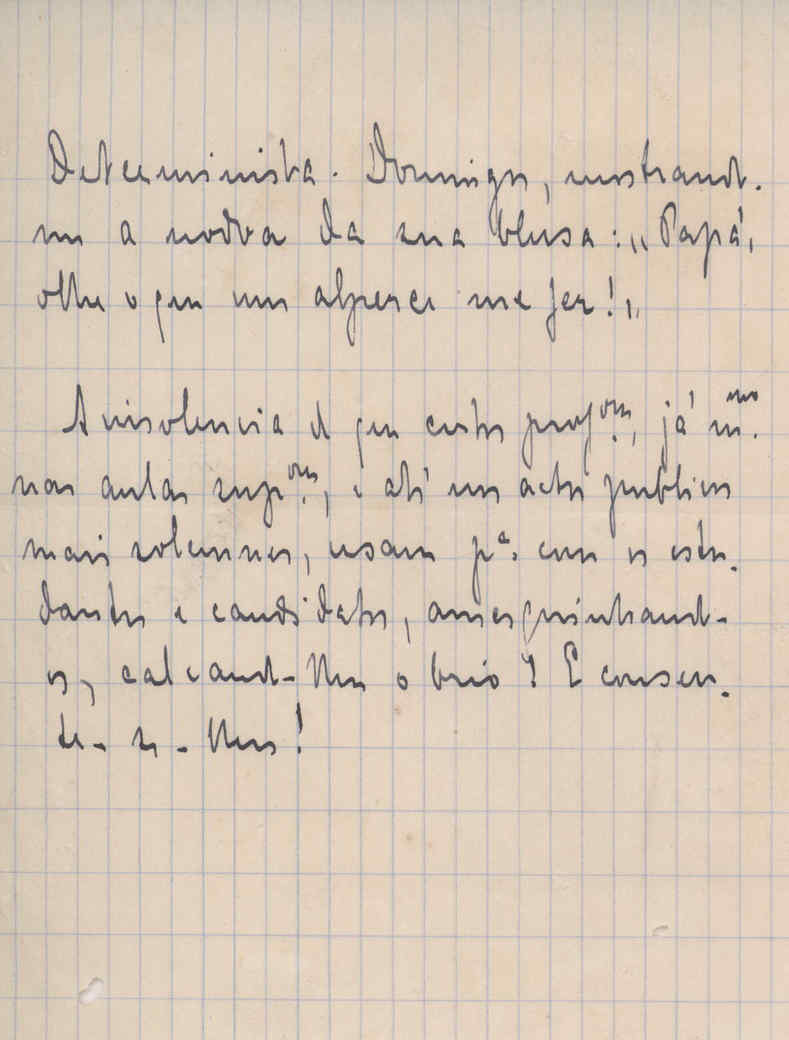 Determinista. Domingos, mostrando-
me a nodoa da sua blusa: „Papá,
olhe o que um alperce me fez!„
A insolencia de que certos prof.ores, já m.mo
nas aulas sup.ores, e até nos actos publicos
mais solemnes, usam p.a com os estu-
dantes e candidatos, amesquinhando-
os, calcando-lhes o brio! E consen-
te-se-lhes!